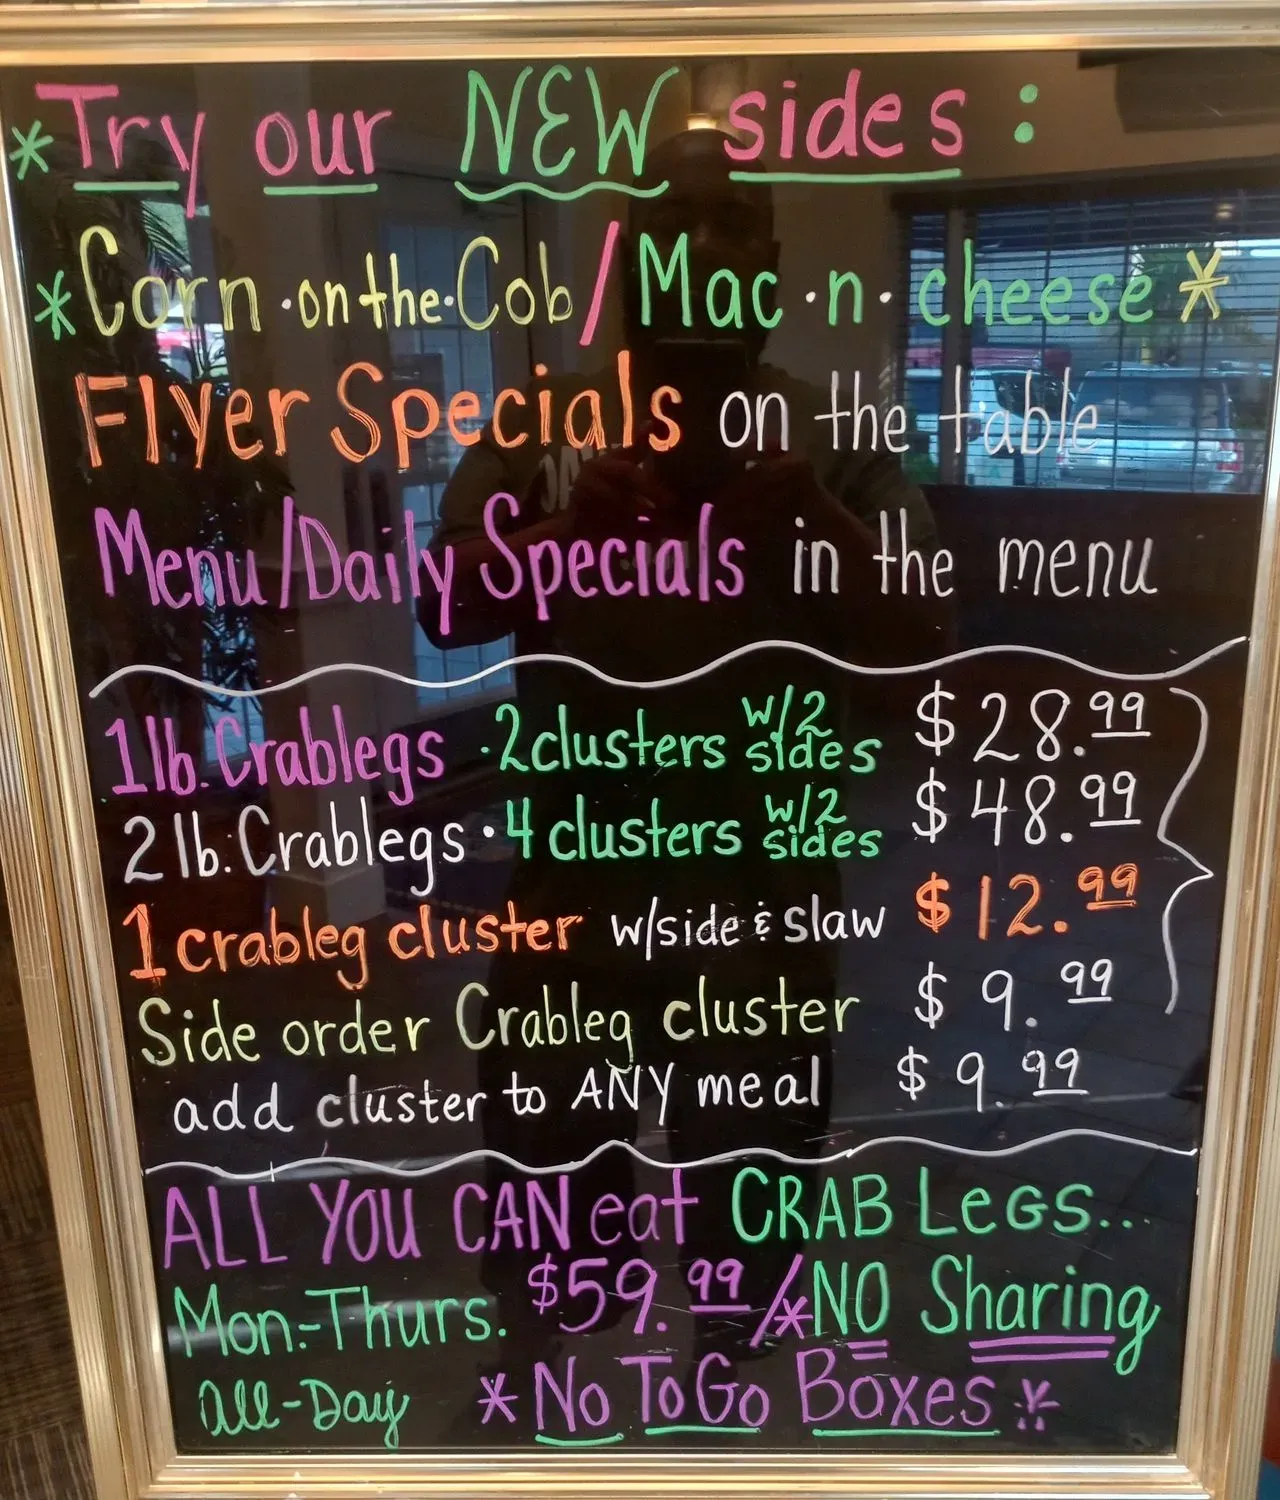 *Try our NEW sides:
*Corn·on·the·Cob/Mac·n·cheese*
Flyer Specials on the table
Menu/Daily Specials in the menu
1lb. Crablegs ·2clusters w/2 sides $28.99
2lb. Crablegs ·4 clusters w/2 sides $48.99
1 crableg cluster w/side & slaw $12.99
Side order Crableg cluster $9.99
add cluster to ANY meal $9.99
ALL YOU CAN eat CRAB LeGS...
Mon.-Thurs. $59.99/*NO Sharing
all-Day *No To Go Boxes*